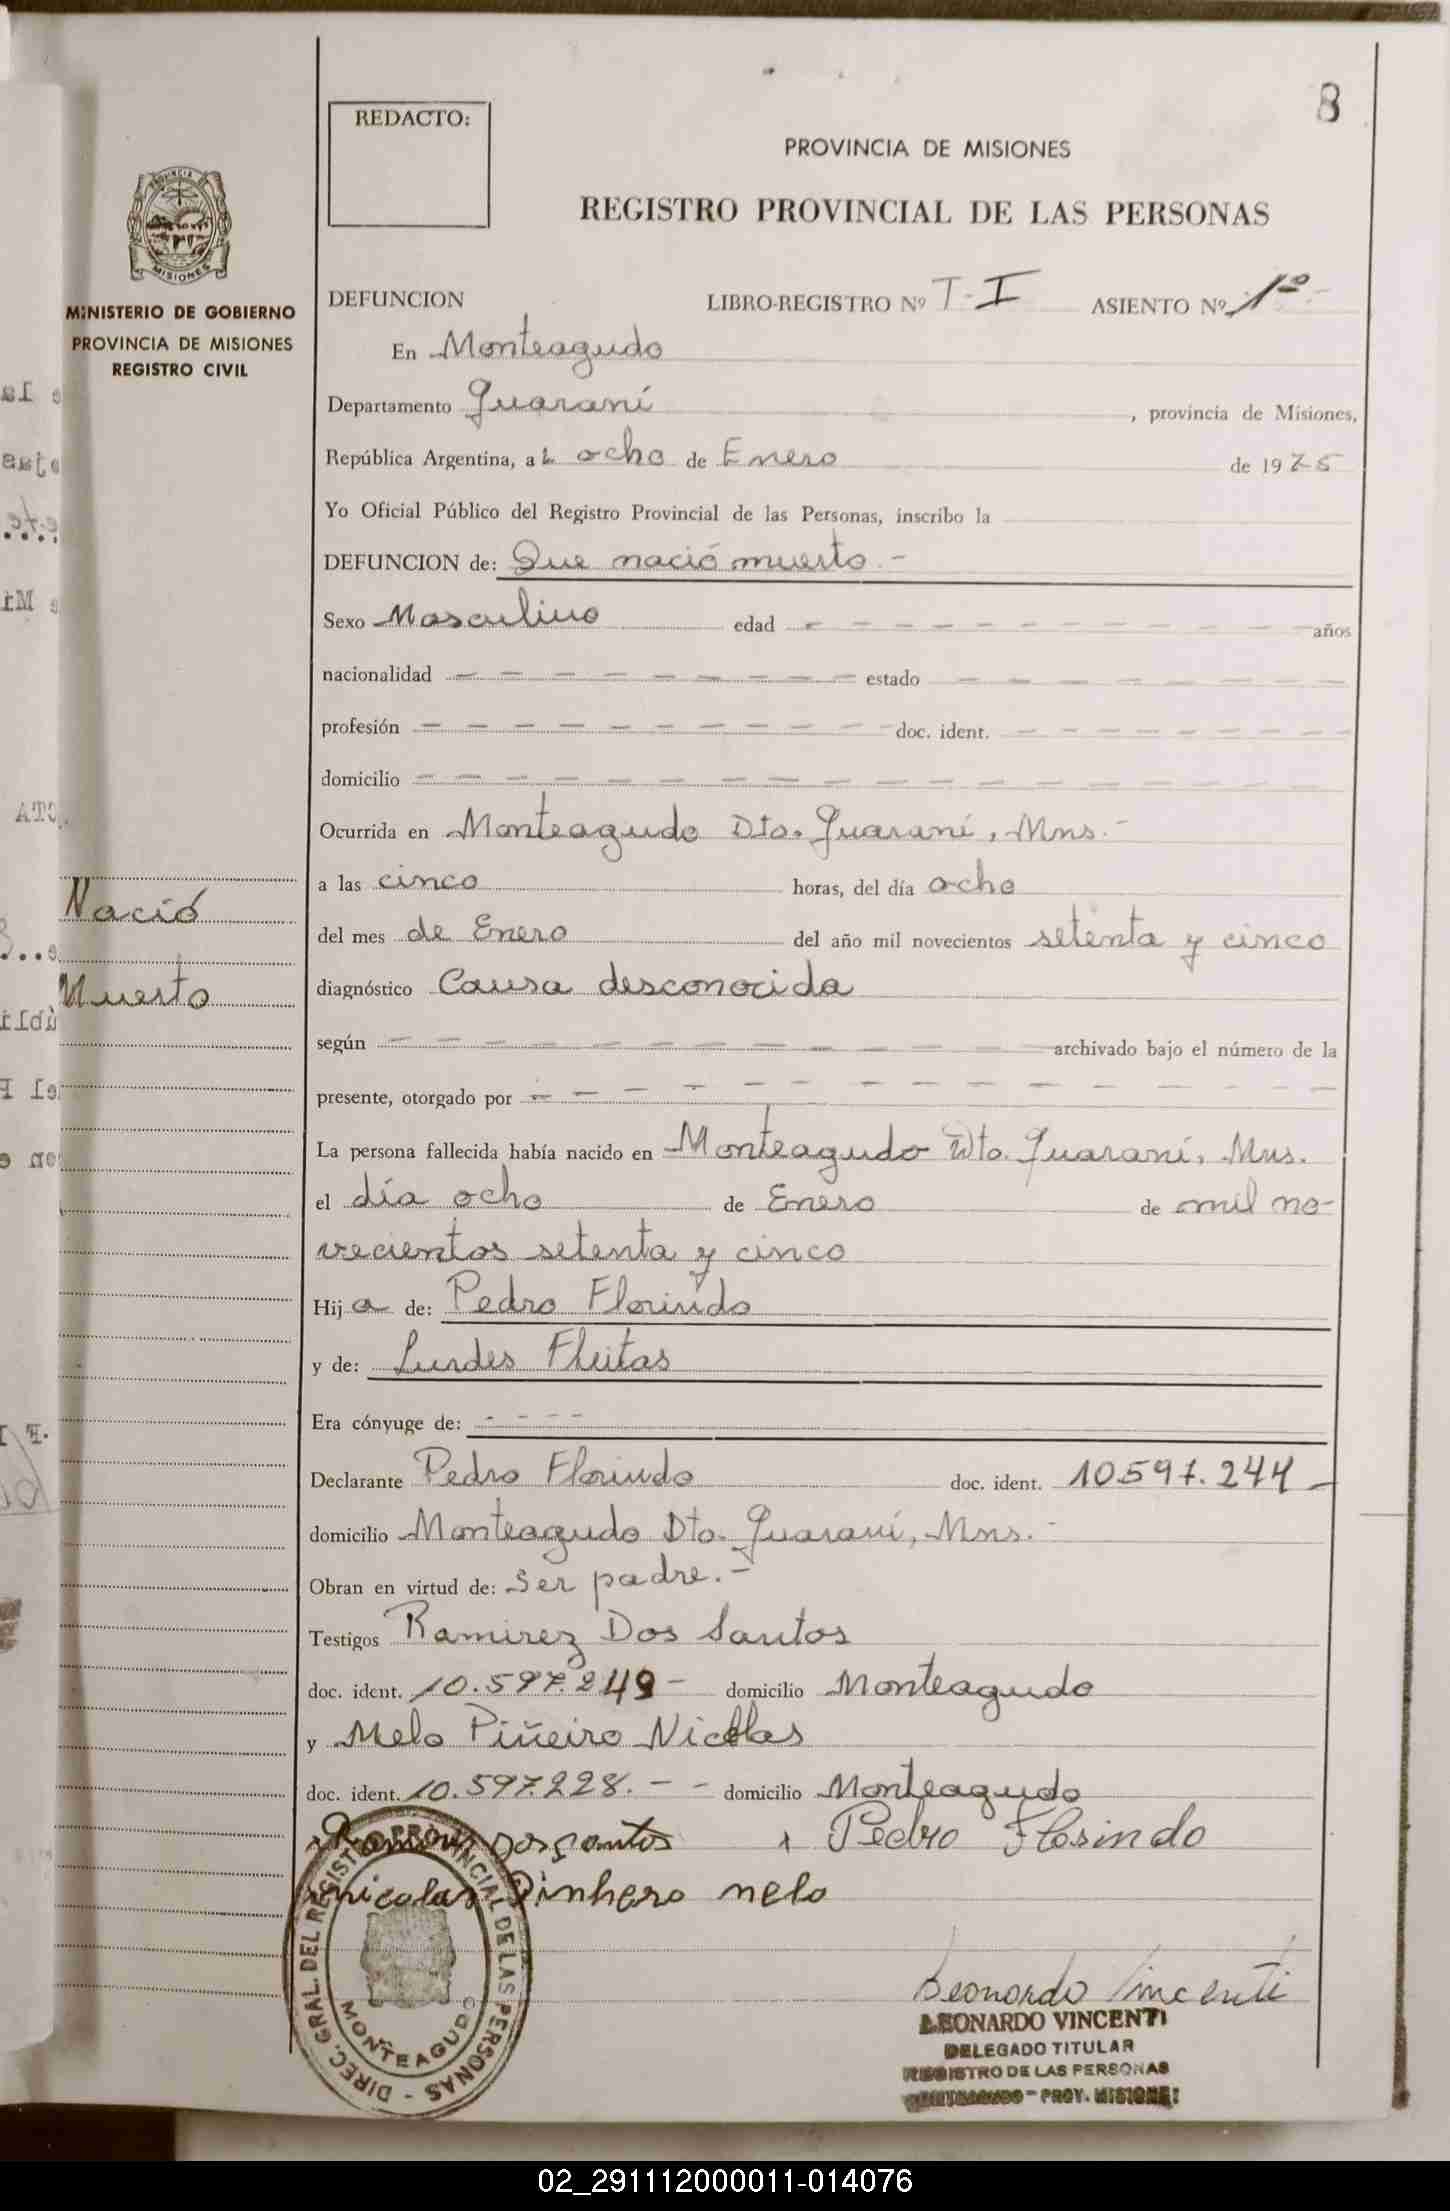 8
REDACTO:
PROVINCIA DE MISIONES
REGISTRO PROVINCIAL DE LAS PERSONAS
PROVINCIA DE
MISIONES
MINISTERIO DE GOBIERNO
PROVINCIA DE MISIONES
REGISTRO CIVIL
DEFUNCION LIBRO-REGISTRO Nº T-I ASIENTO Nº 1º-
En Monteagudo
Departamento Guaraní , provincia de Misiones,
República Argentina, a L ocho de Enero de 1975
Yo Oficial Público del Registro Provincial de las Personas, inscribo la
DEFUNCION de: Que nació muerto.-
Sexo Masculino edad - - - - - - - - - - - años
nacionalidad - - - - - - - - - estado - - - - - - - - -
profesión - - - - - - - - - - doc. ident. - - - - - - - -
domicilio - - - - - - - - - - - - - - - - - - - -
Ocurrida en Monteagudo Dto. Guaraní, Mns.-
a las cinco horas, del día ocho
Nació
del mes de Enero del año mil novecientos setenta y cinco
Muerto
diagnóstico Causa desconocida
según - - - - - - - - - - - - - archivado bajo el número de la
presente, otorgado por - - - - - - - - - - - - - - - -
La persona fallecida había nacido en Monteagudo Dto. Guaraní, Mns.
el día ocho de Enero de mil no-
vecientos setenta y cinco
Hij a de: Pedro Florindo
y de: Lurdes Fleitas
Era cónyuge de: - - - -
Declarante Pedro Florindo doc. ident. 10597.244-
domicilio Monteagudo Dto. Guaraní, Mns.-
Obran en virtud de: Ser padre.-
Testigos Ramirez Dos Santos
doc. ident. 10.597.249- domicilio Monteagudo
y Melo Piñeiro Nicolas
doc. ident. 10.597.228.- - domicilio Monteagudo
Dos santos x Pedro Florindo
nicolas Pinhero melo
DIREC. GRAL. DEL REGISTRO PROVINCIAL DE LAS PERSONAS -
MONTEAGUDO
Leonardo Vincenti
LEONARDO VINCENTI
DELEGADO TITULAR
REGISTRO DE LAS PERSONAS
MONTEAGUDO - PROV. MISIONES
02_291112000011-014076